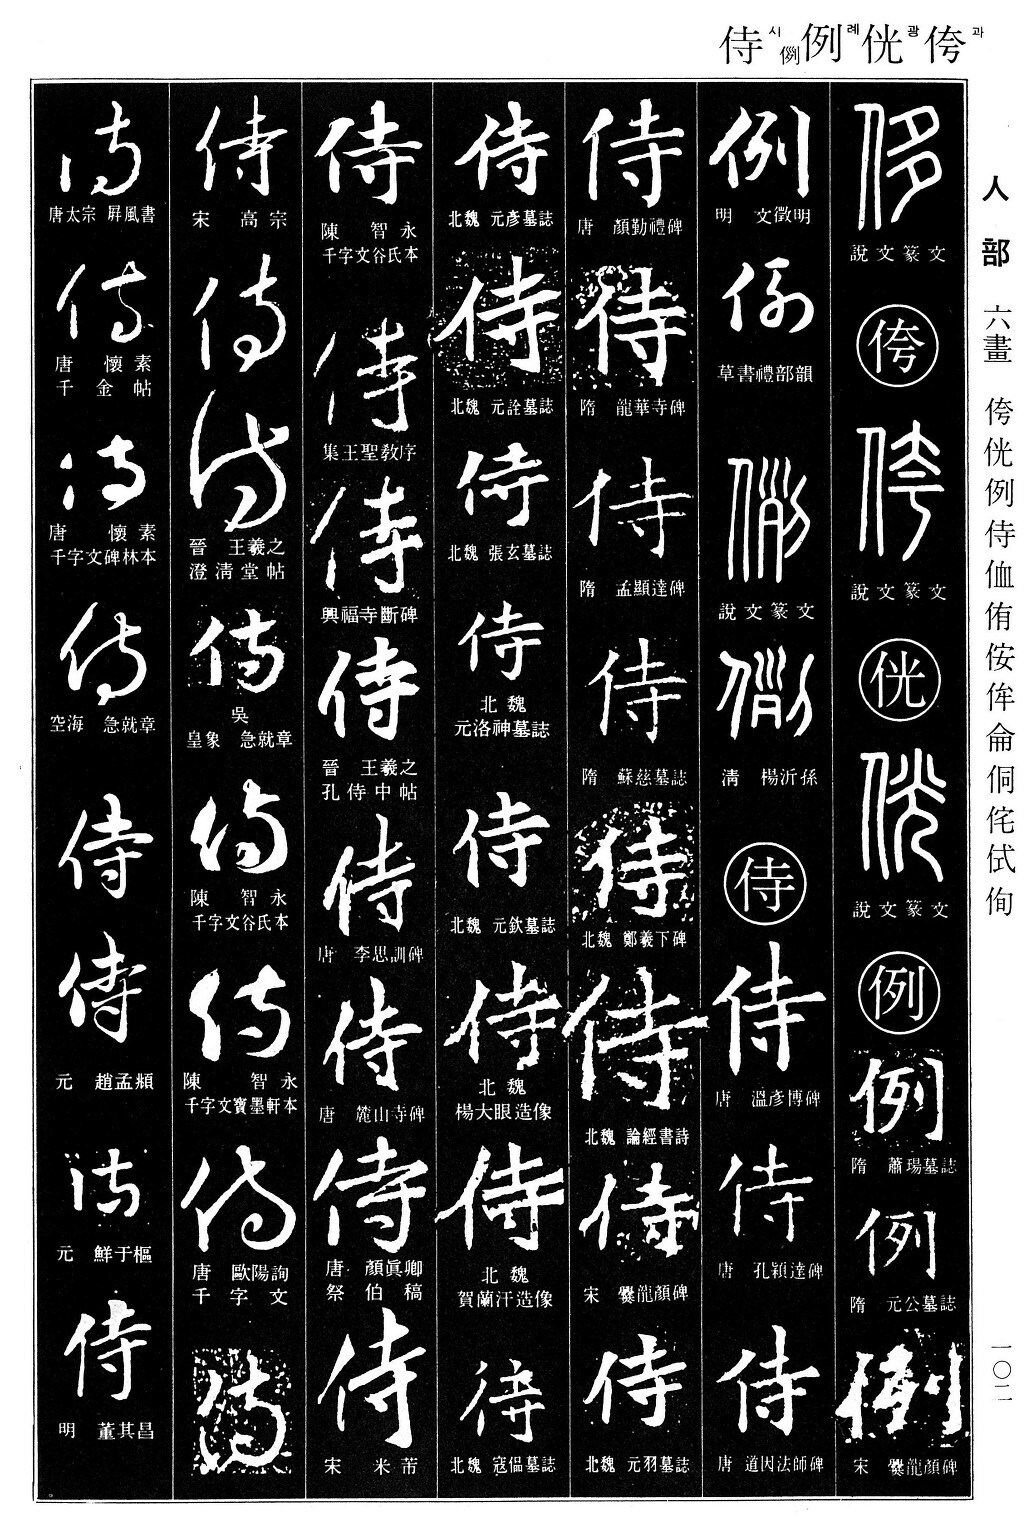 侍시 𠛱 例례 侊광 侉과
人部 六畫 侉侊例侍侐侑侒侔侖侗侘侙侚
一〇二
侈
說文篆文
侉
侉
說文篆文
侊
侊
說文篆文
例
例
隋 蕭瑒墓誌
例
隋 元公墓誌
例
宋 爨龍顏碑
例
明 文徵明
例
草書禮部韻
例
說文篆文
例
清 楊沂孫
侍
侍
唐 溫彥博碑
侍
唐 孔穎達碑
侍
唐 道因法師碑
侍
唐 顏勤禮碑
侍
隋 龍華寺碑
侍
隋 孟顯達碑
侍
隋 蘇慈墓誌
侍
北魏 鄭羲下碑
侍
北魏 論經書詩
侍
宋 爨龍顏碑
侍
北魏 元羽墓誌
侍
北魏 元彥墓誌
侍
北魏 元詮墓誌
侍
北魏 張玄墓誌
侍
北魏
元洛神墓誌
侍
北魏 元欽墓誌
侍
北魏
楊大眼造像
侍
北魏
賀蘭汗造像
侍
北魏 寇侃墓誌
侍
陳 智永
千字文谷氏本
侍
集王聖教序
侍
興福寺斷碑
侍
晉 王羲之
孔侍中帖
侍
唐 李思訓碑
侍
唐 麓山寺碑
侍
唐 顏眞卿
祭伯稿
侍
宋 米芾
侍
宋 高宗
侍
侍
晉 王羲之
澄淸堂帖
侍
吳
皇象 急就章
侍
陳 智永
千字文谷氏本
侍
陳 智永
千字文寶墨軒本
侍
唐 歐陽詢
千字文
侍
侍
唐太宗 屛風書
侍
唐 懷素
千金帖
侍
唐 懷素
千字文碑林本
侍
空海 急就章
侍
侍
元 趙孟頫
侍
元 鮮于樞
侍
明 董其昌